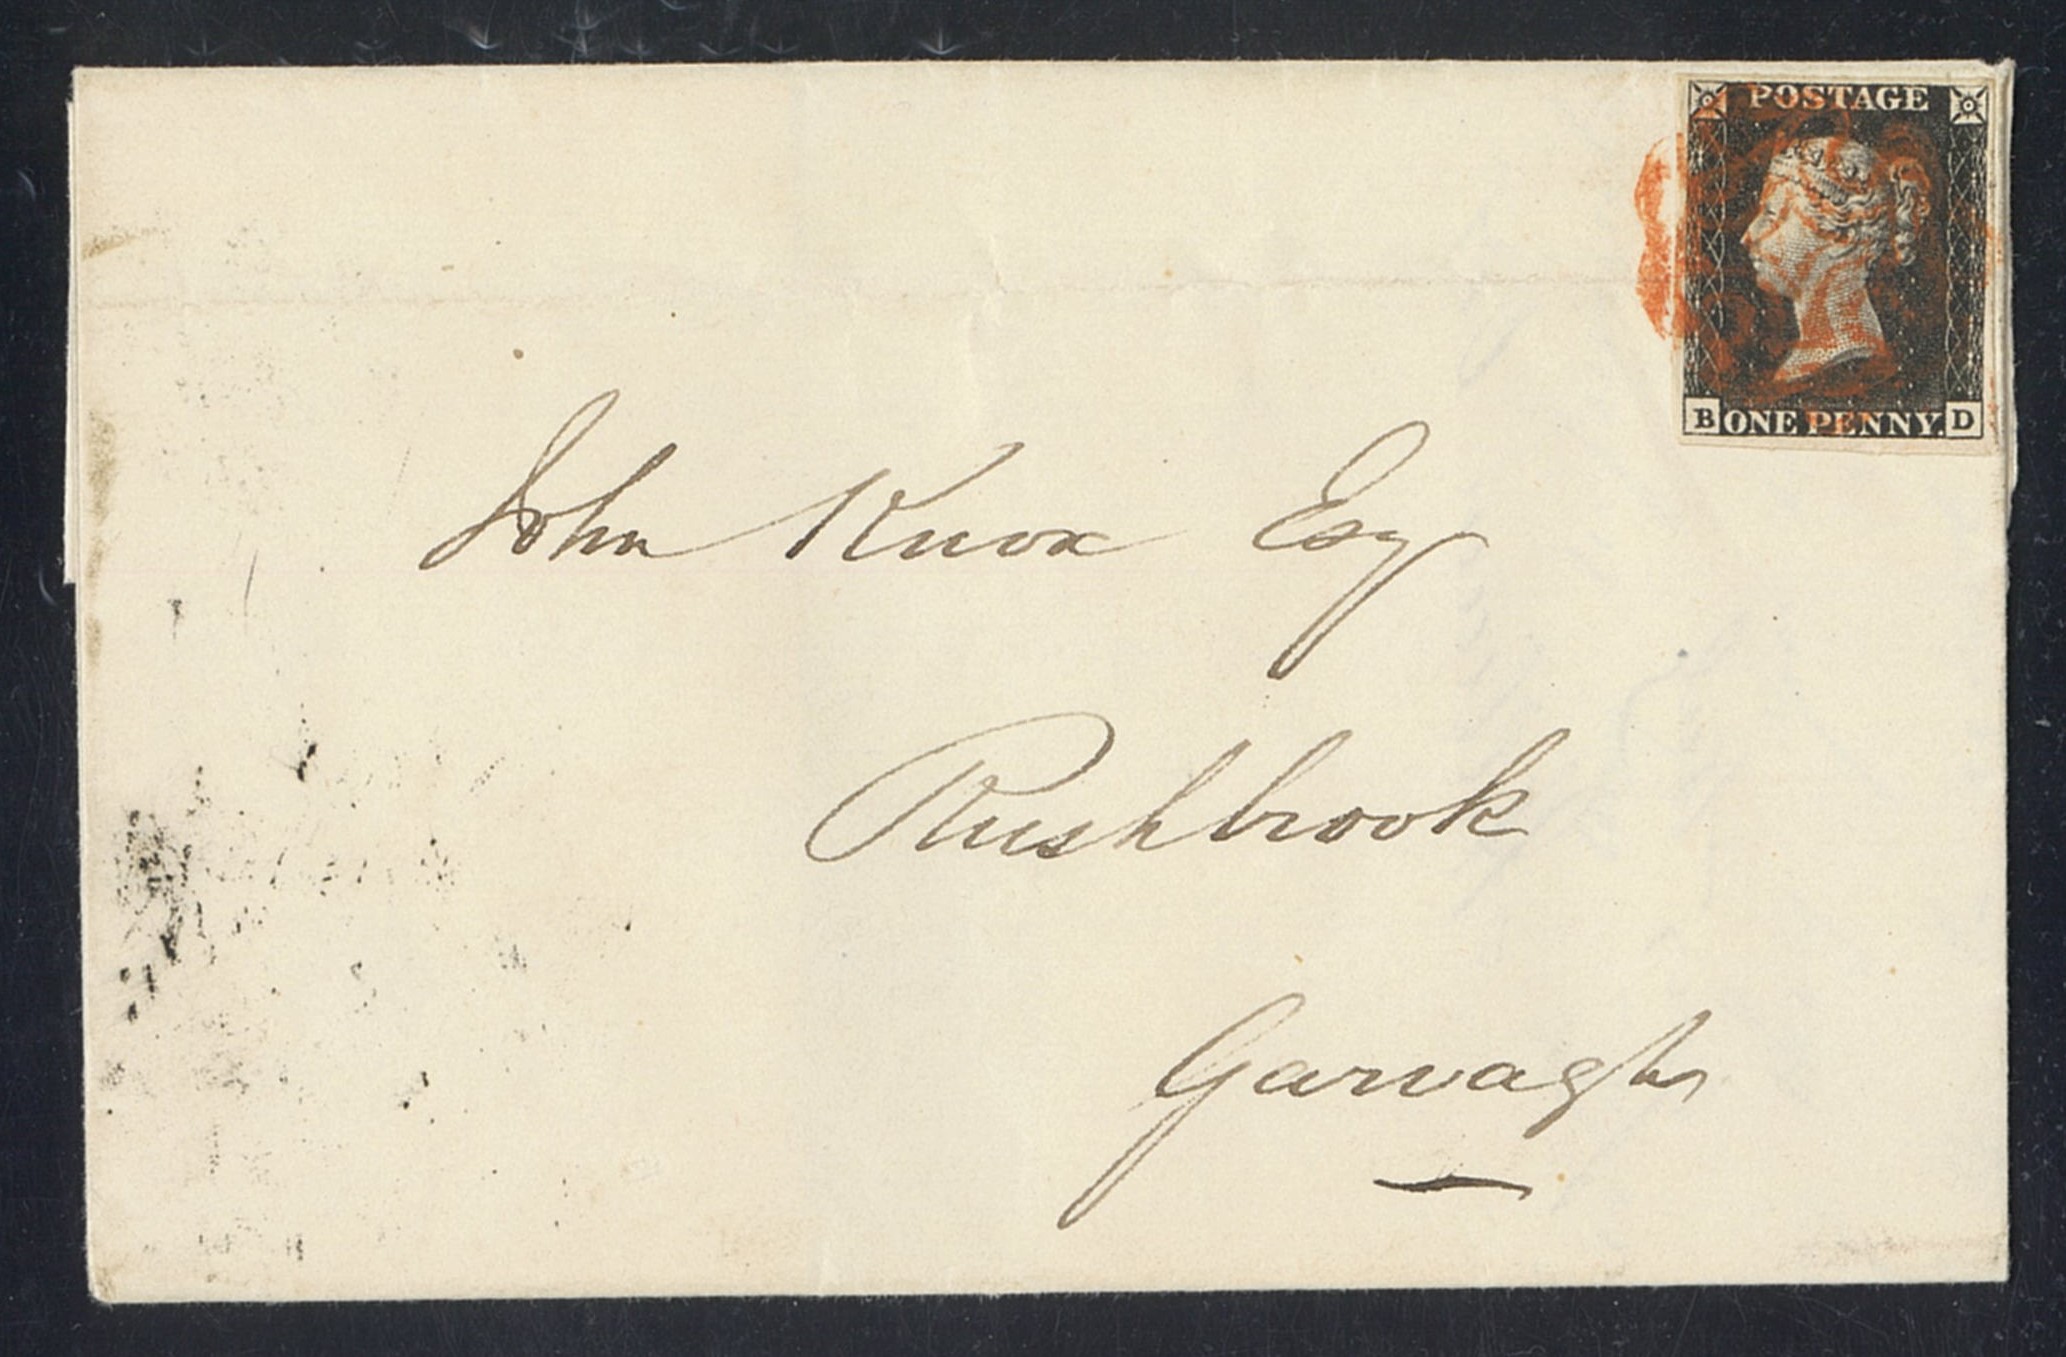 POSTAGE
B ONE PENNY. D
John Knox Esq
Rushbrook
Garvagh